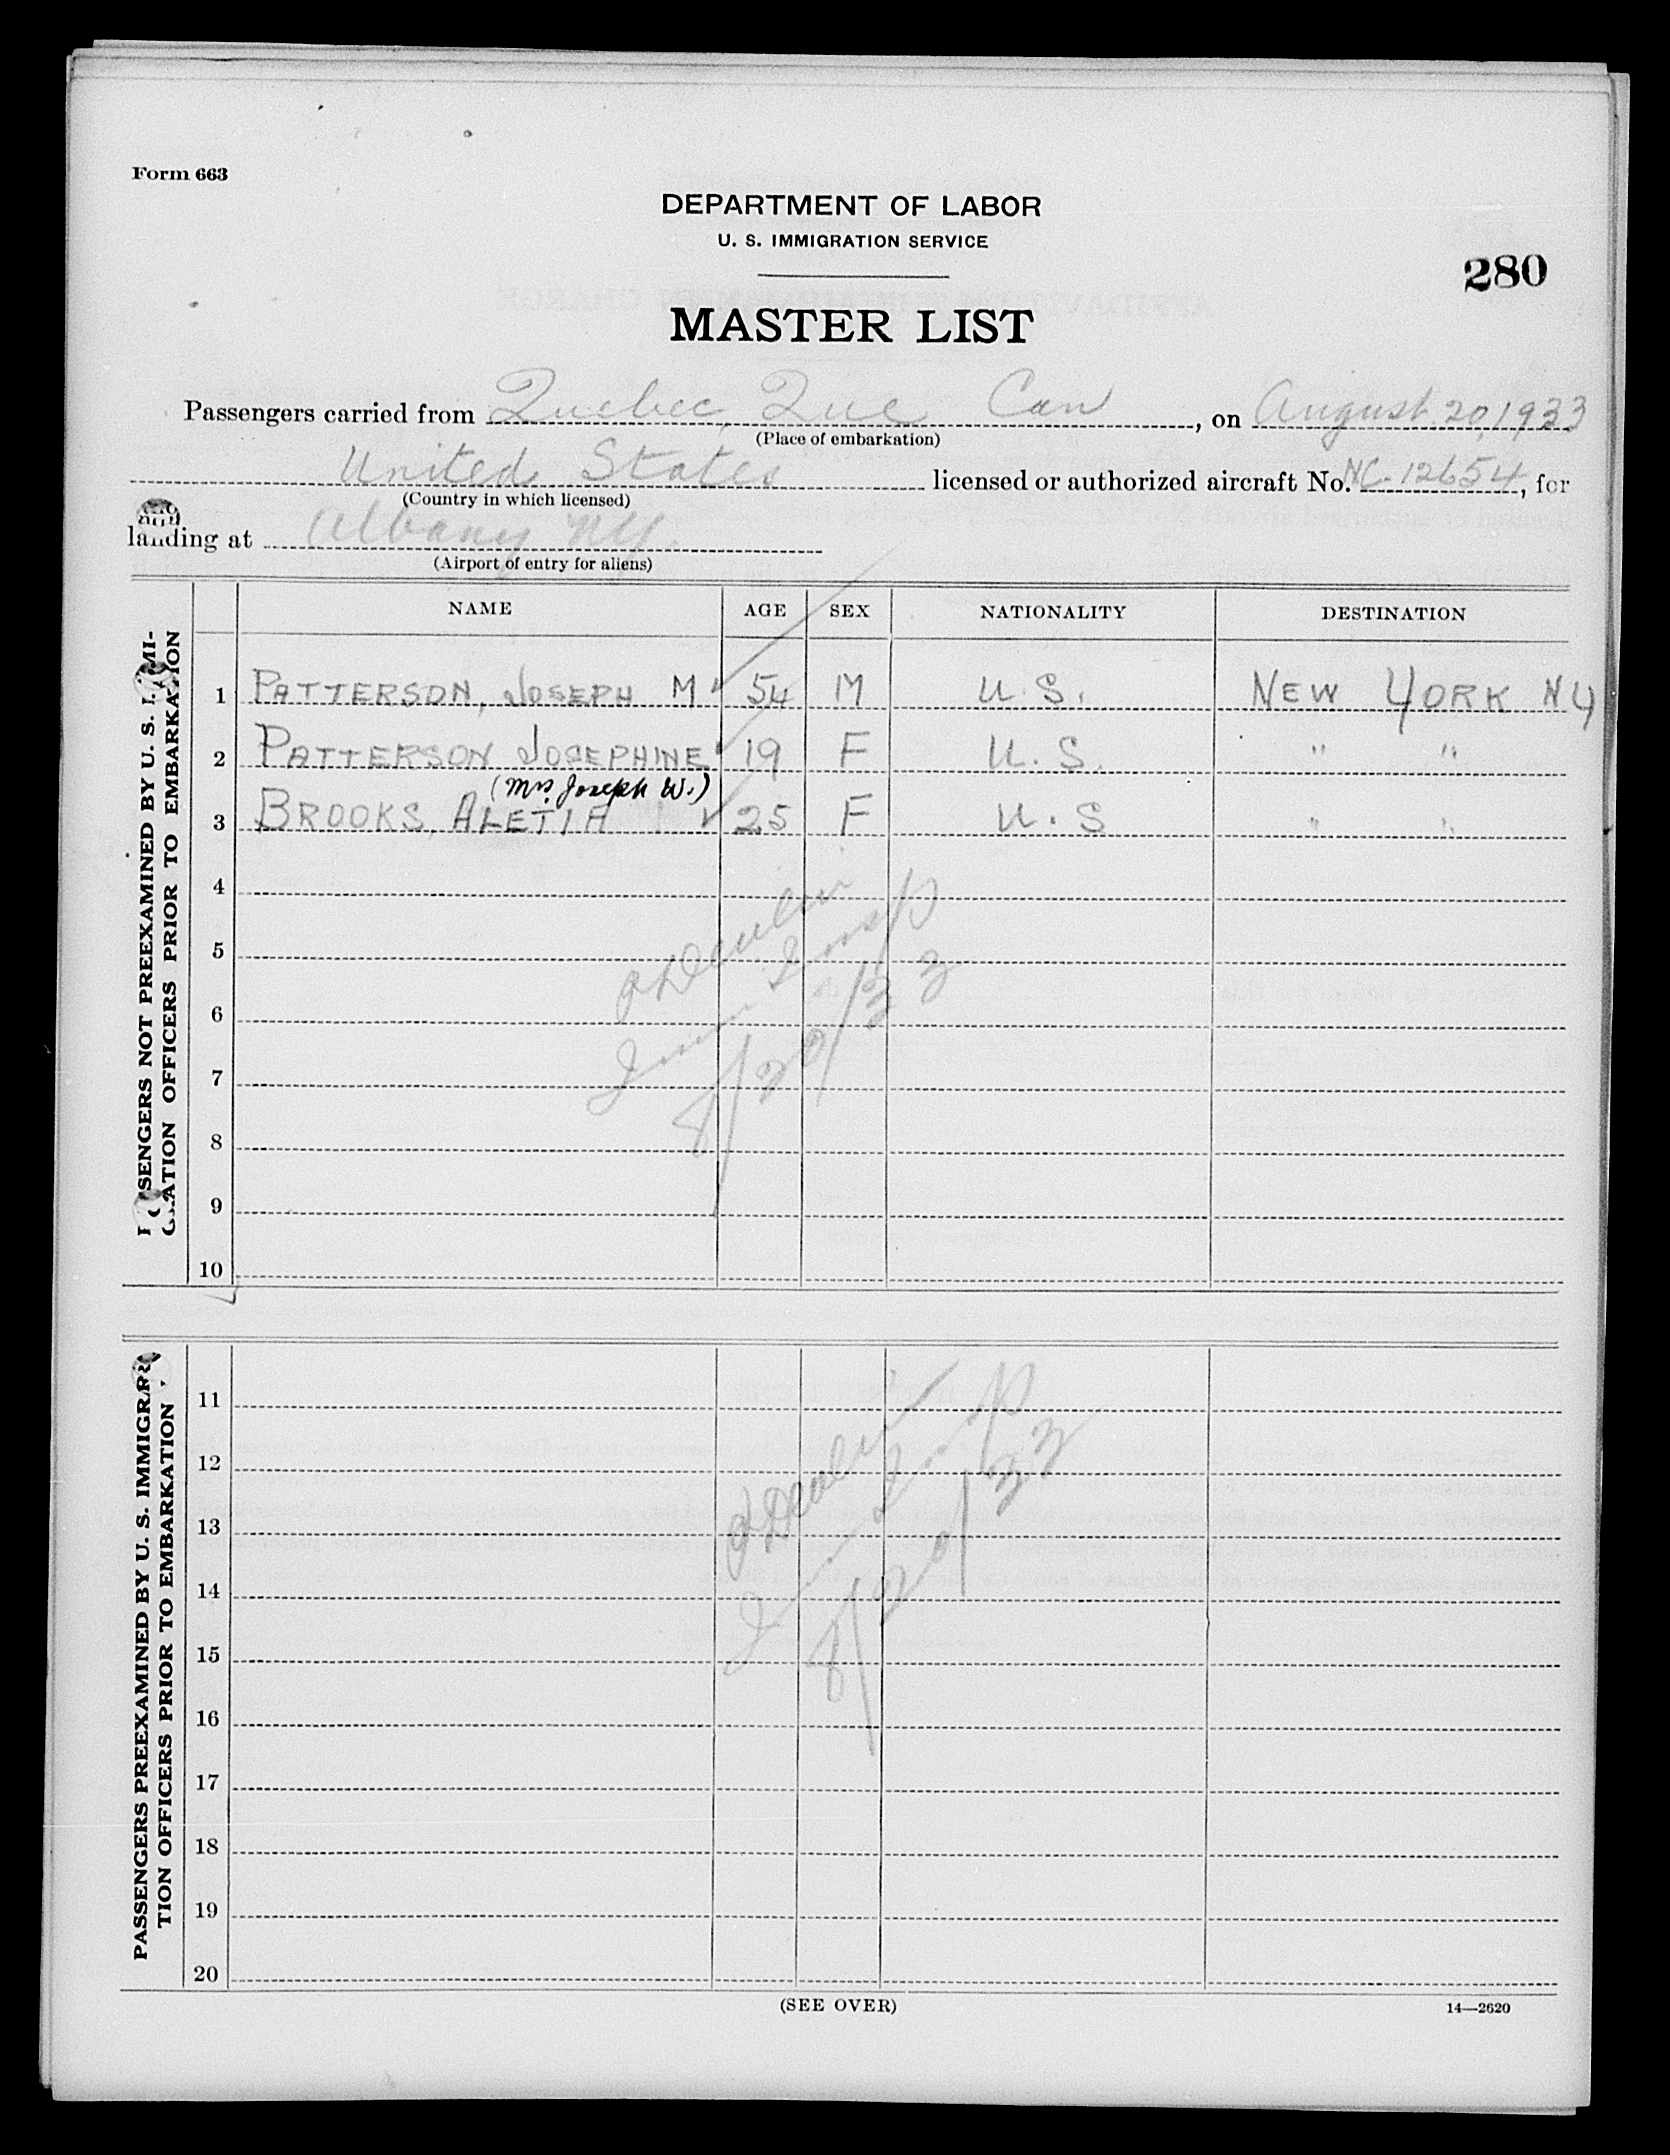 Form 663
DEPARTMENT OF LABOR
U. S. IMMIGRATION SERVICE
280
MASTER LIST
Passengers carried from Quebec, Que Can, on August 20, 1933
(Place of embarkation)
United States licensed or authorized aircraft No. NC-12654, for
(Country in which licensed)
landing at Albany NY.
(Airport of entry for aliens)
NAME AGE SEX NATIONALITY DESTINATION
1 PATTERSON, JOSEPH M 54 M U.S. NEW YORK NY
2 PATTERSON JOSEPHINE 19 F U.S. " "
(Mrs. Joseph W.)
3 BROOKS, ALETIA 25 F U.S " "
4
5
6
7
8
9
10
Imm Insp
8/20/33
SENGERS NOT PREEXAMINED BY U. S. I
ATION OFFICERS PRIOR TO EMBARKATION
11
12
13
14
15
16
17
18
19
20
Insp
8/20/33
PASSENGERS PREEXAMINED BY U. S. IMMIGRA
TION OFFICERS PRIOR TO EMBARKATION
(SEE OVER)
14—2620